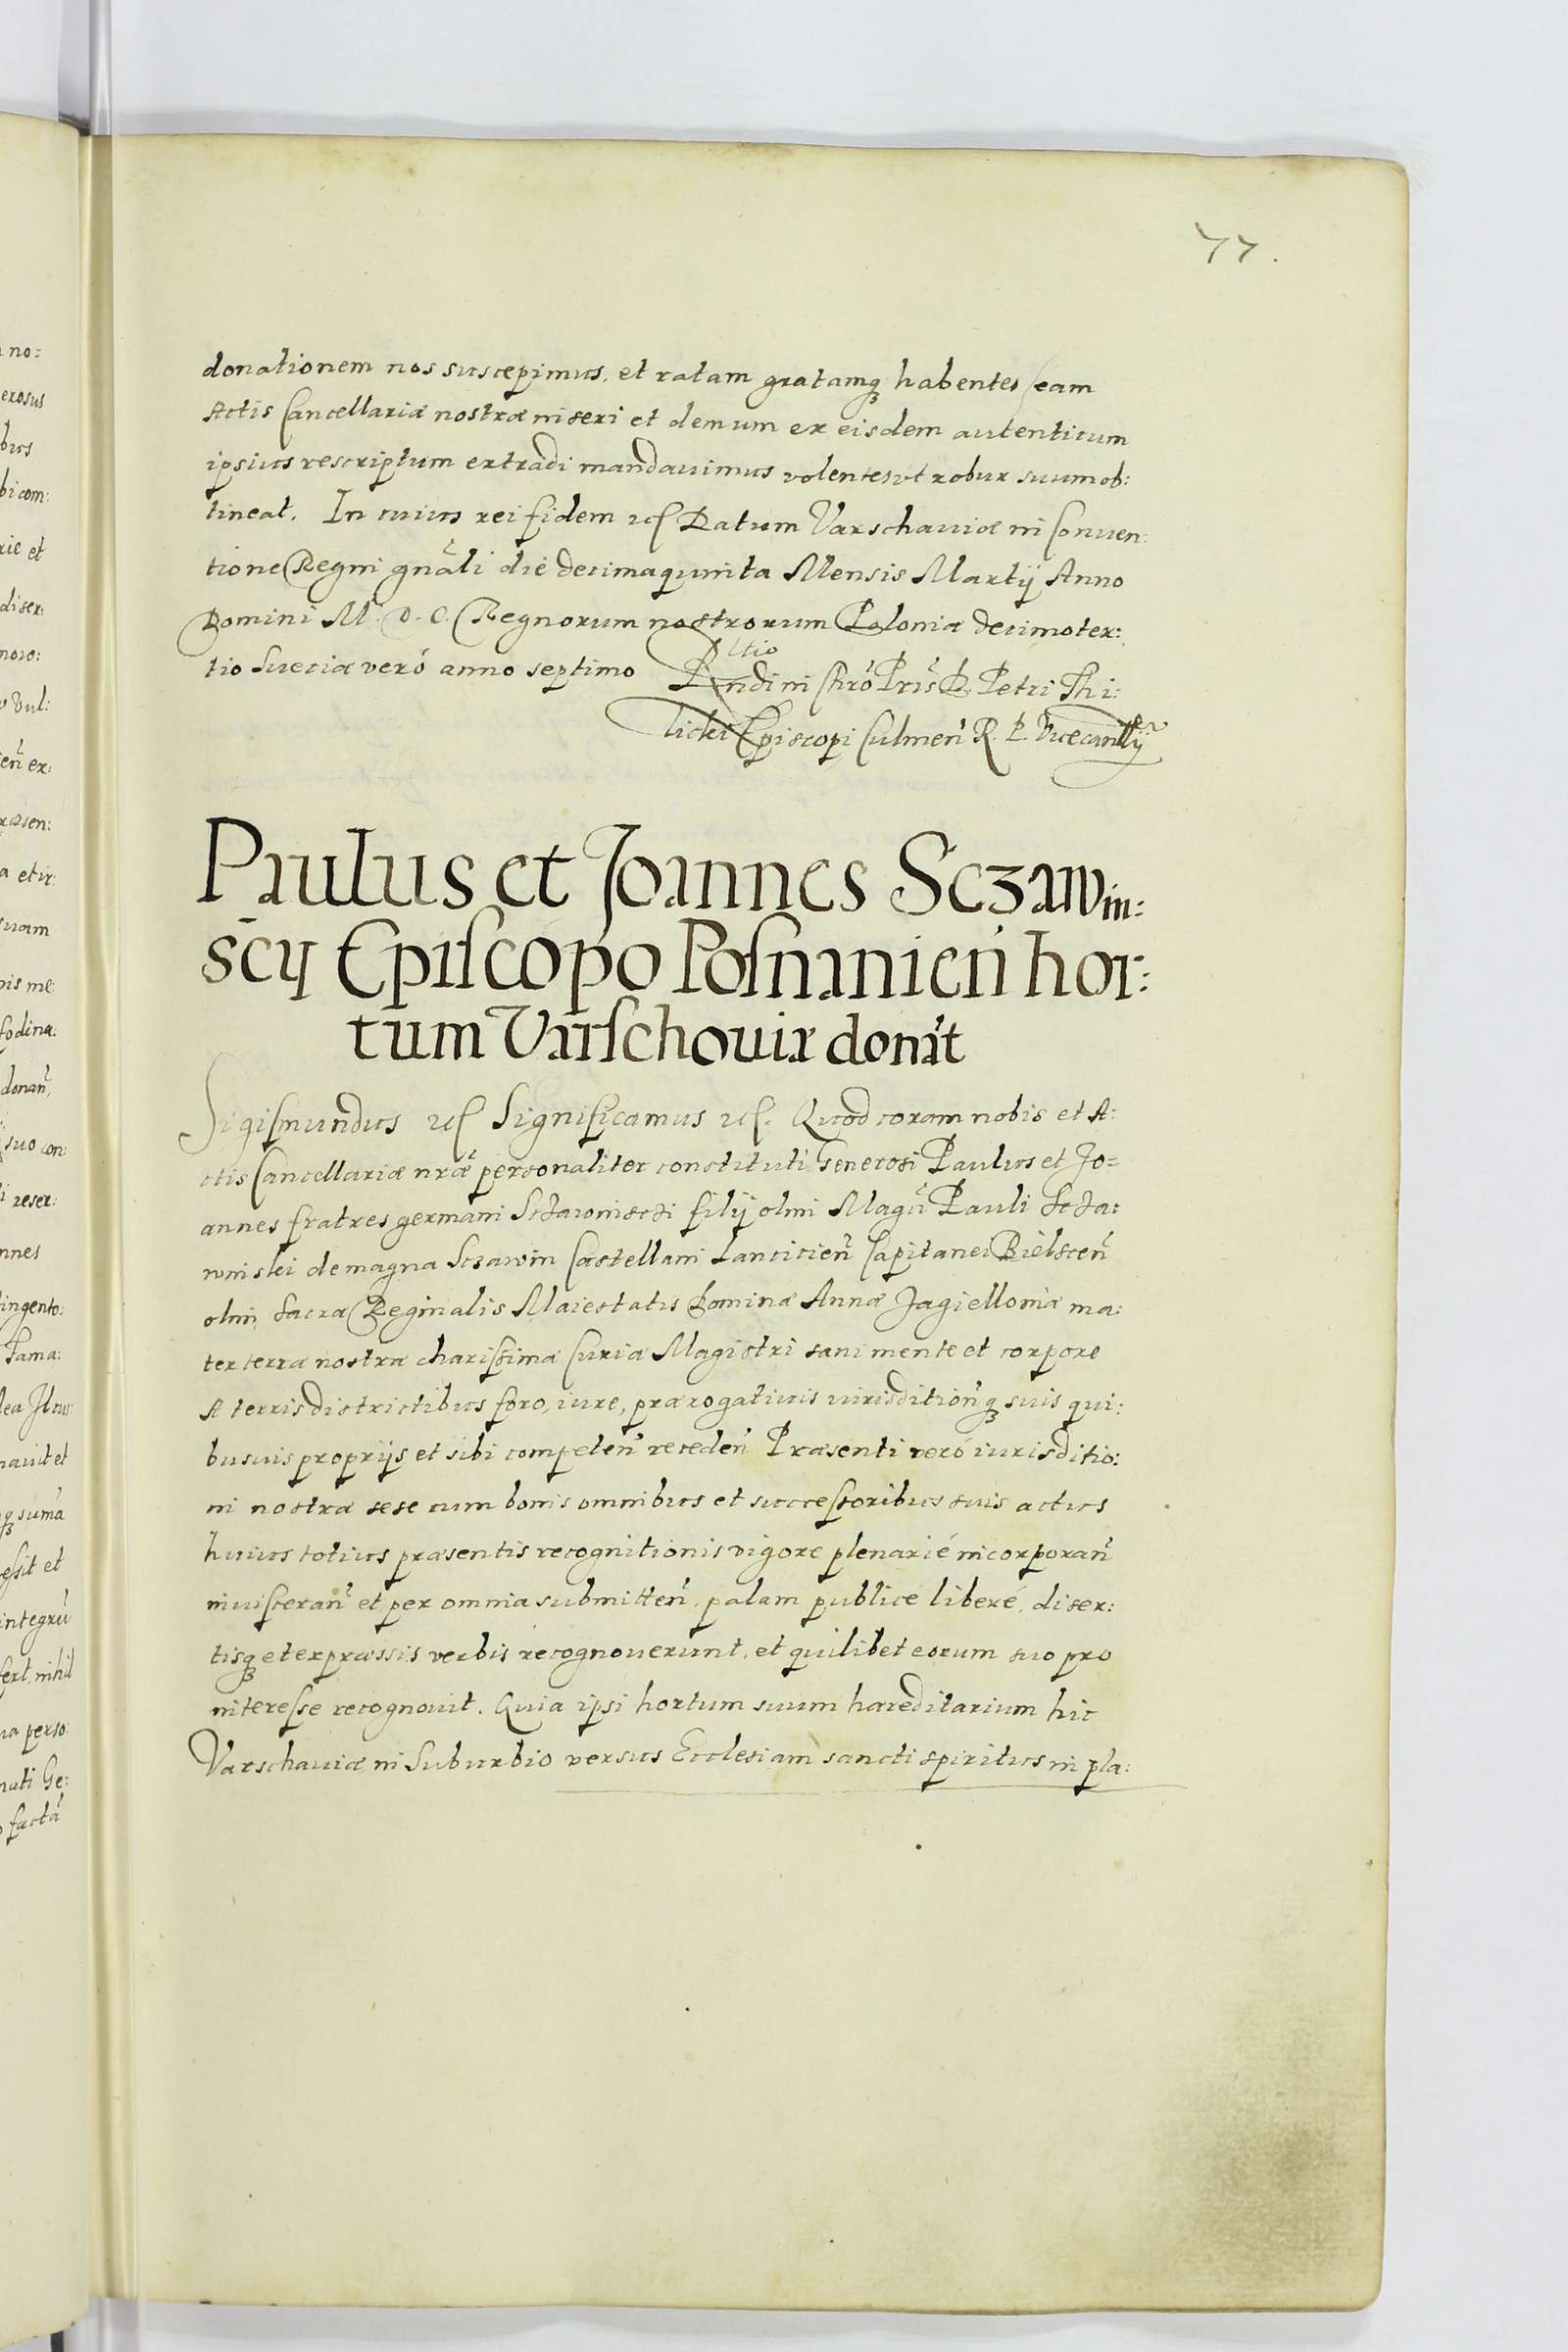 77.
donationem nos suscepimus, et ratam gratamq3 habentes eam
Actis Cancellariæ nostræ inseri et demum ex eisdem autenticum
ipsius rescriptum extradi mandavimus volentes ut robur suum ob:
tineat. In cuius rei fidem etc Datum Varschaviæ in Conven:
tione Regni gnãli die decimaquinta Mensis Martij Anno
Domini M. D. C. Regnorum nostrorum Poloniæ decimoter:
tio Sueciæ veró anno septimo
R. Petri Thi:
licki Episcopi Culmeñ R. P. Vicecancllrij
Paulus et Joannes Sczawin:
scij Episcopo Posnanień hor:
tum Varschoviæ donãt
Sigismundus etc Significamus etc. Quod coram nobis et A:
ctis Cancellariæ nræ personaliter constituti Generosi Paulus et Jo=
annes fratres germani Sczawinscij filij olim Magci Pauli Scza:
winski de magna Sczawin Castellani Lancicień Capitanei Bielsceń
olim Sacræ Reginalis Maiestatis Dominæ Annæ Jagielloniæ ma:
terteræ nostræ charissimæ Curiæ Magistri sani mente et corpore
A terris districtibus foro, iure, prærogativis iurisditionq3 suis qui:
busvis proprijs et sibi competeñ recedeñ Præsenti veró iurisditio:
ni nostræ sese cum bonis omnibus et successoribus suis actus
huius totius præsentis recognitionis vigore plenarié incorporañ
inviscerañ et per omnia submitteñ, palam publice liberé, diser:
tisq3 et expræssis verbis recognoverunt, et quilibet eorum suo pro
interesse recognovit. Quia ipsi hortum suum hæreditarium hic
Varschaviæ in Suburbio versus Ecclesiam sancti spiritus in pla: